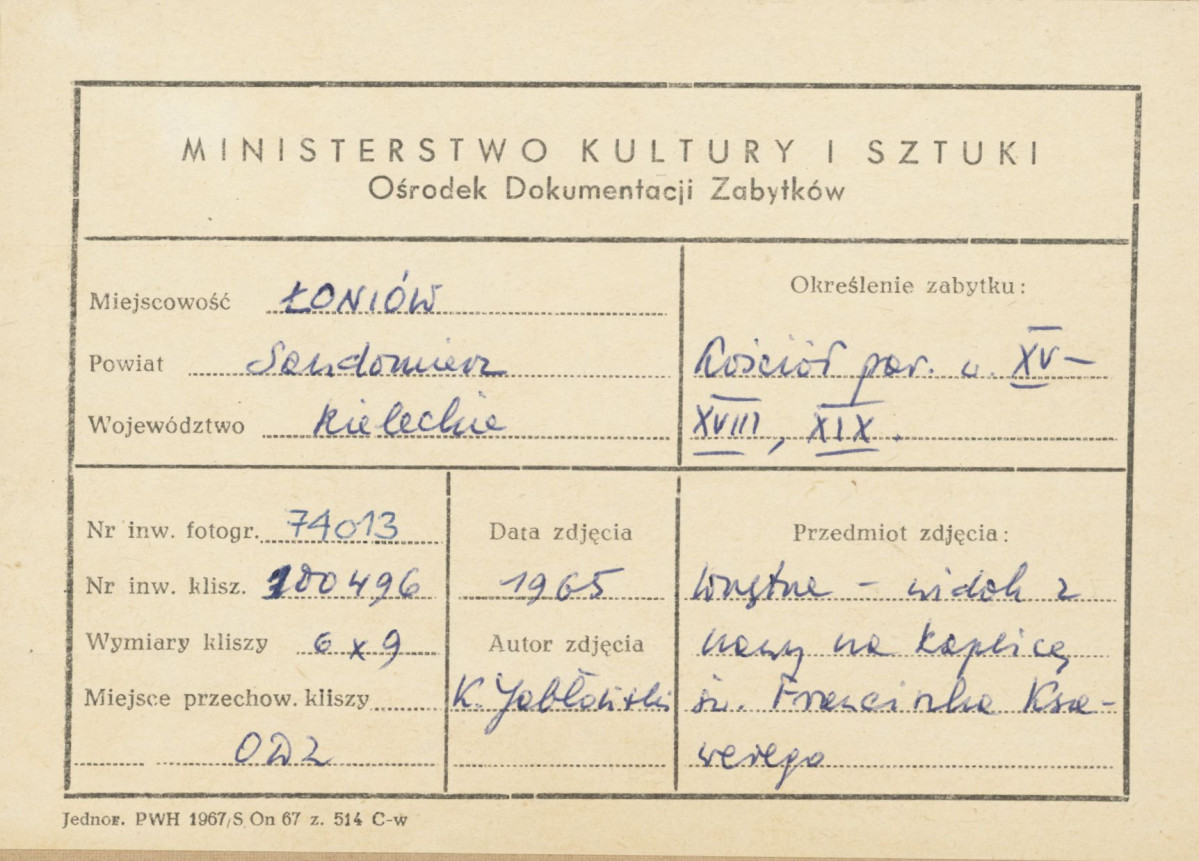 MINISTERSTWO KULTURY I SZTUKI
Ośrodek Dokumentacji Zabytków
Miejscowość ŁONIÓW
Powiat Sandomierz
Województwo Kieleckie
Określenie zabytku:
Kościół par. w. XV-
XVIII, XIX.
Nr inw. fotogr. 74013
Nr inw. klisz. 100496
Wymiary kliszy 6 x 9
Miejsce przechow. kliszy
ODZ
Data zdjęcia
1965
Autor zdjęcia
K. Jabłoński
Przedmiot zdjęcia:
Wnętrze - widok z
nawy na kaplicę
św. Franciszka Ksa-
werego
Jednor. PWH 1967/S On 67 z. 514 C-w